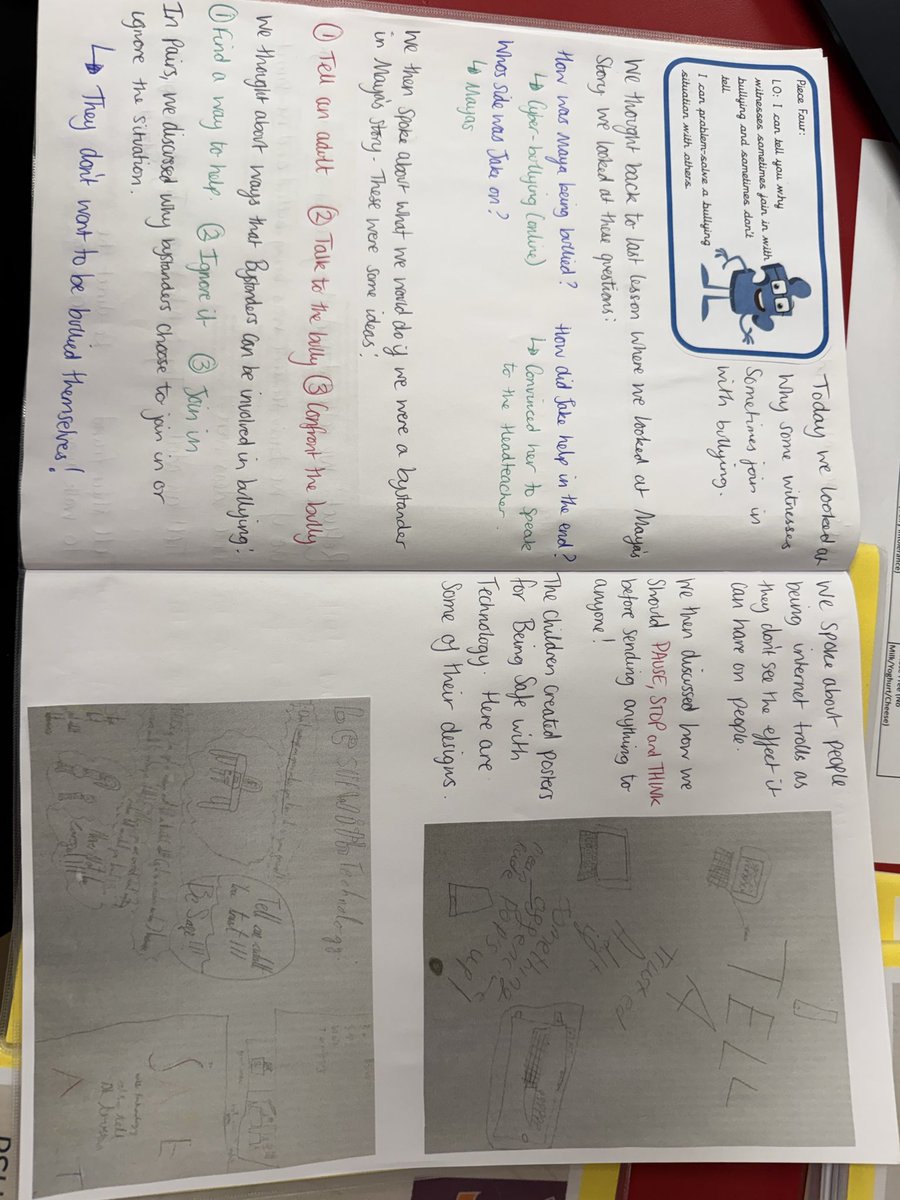 Piece Four:
LO: I can tell you why
witnesses sometimes join in with
bullying and sometimes don't
tell.
I can problem-solve a bullying
situation with others.
Today we looked at
why some witnesses
sometimes join in
with bullying.
We thought back to last lesson where we looked at Maya's
Story. We looked at these questions:
How was Maya being bullied?
↳ Cyber-bullying (online)
How did Jake help in the end?
↳ Convinced her to speak
to the Headteacher.
Who's side was Jake on?
↳ Mayas
We then spoke about what we would do if we were a bystander
in Maya's story. These were some ideas:
① Tell an adult ② Talk to the bully ③ Confront the bully
We thought about ways that Bystanders can be involved in bullying:
① Find a way to help. ② Ignore it ③ Join in
In pairs, we discussed why bystanders choose to join in or
ignore the situation.
↳ They don't want to be bullied themselves!
We spoke about people
being internet trolls as
they don't see the effect it
can have on people.
We then discussed how we
should PAUSE, STOP and THINK
before sending anything to
anyone!
The children created posters
for Being Safe with
Technology. Here are
some of their designs.
TELL
A
Technology
Tell an adult
Be Safe!!!
Milk/Yoghurt/Cheese)